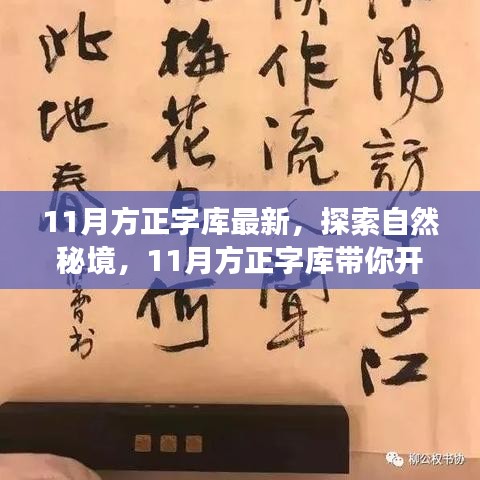 陽訪子江
作流
梅花何
此地春
11月方正字库最新，探索自然
秘境，11月方正字库带你开
柳公权书协